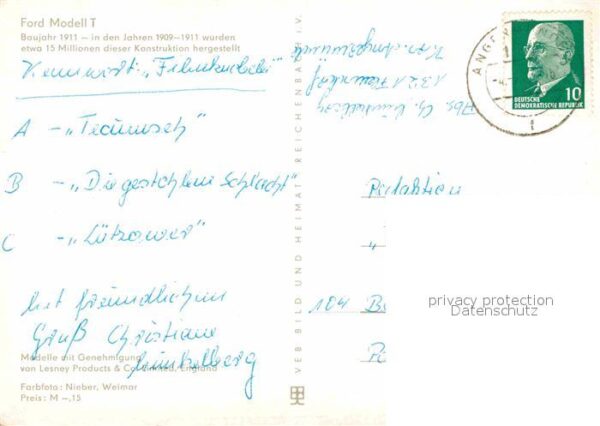 Ford Modell T
Baujahr 1911 – in den Jahren 1909–1911 wurden
etwa 15 Millionen dieser Konstruktion hergestellt
Kennwort: „
A – „Tecumseh“
B – „Die gestohlene Schlacht“
C – „Lützower“
Mit freundlichem
Gruß Christiane
Modelle mit Genehmigung
von Lesney Products & Co.
England
Farbfoto: Nieber, Weimar
Preis: M –,15
VEB BILD UND HEIMAT REICHENBACH I. V.
Abs. Ch.
1321
Kr. Angermünde
ANGE
10
DEUTSCHE
DEMOKRATISCHE REPUBLIK
Redaktion
„
104 B
privacy protection
Datenschutz